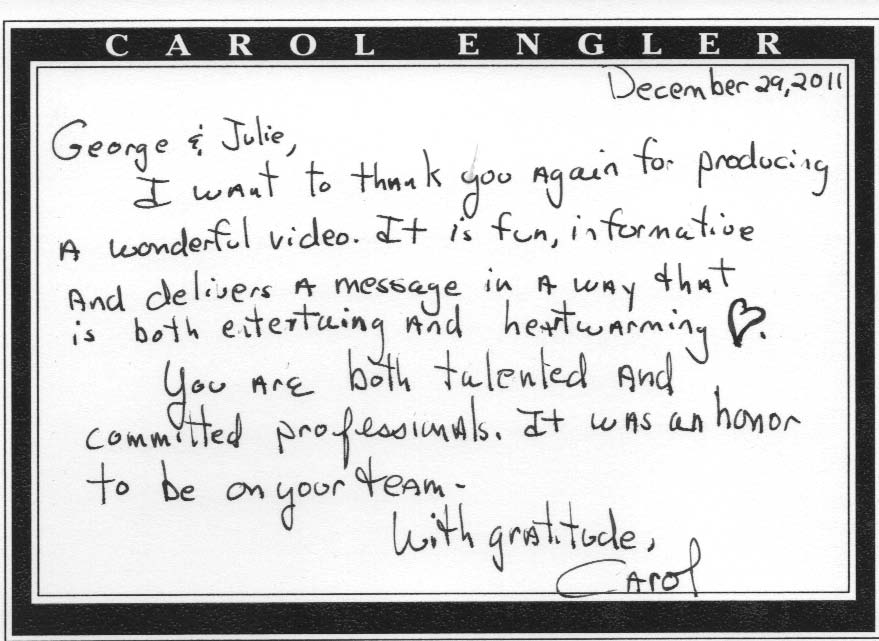 CAROL ENGLER
December 29, 2011
George & Julie,
I want to thank you again for producing
a wonderful video. It is fun, informative
And delivers a message in a way that
is both entertaining and heartwarming ♡.
You are both talented and
committed professionals. It was an honor
to be on your team-
With gratitude,
Carol